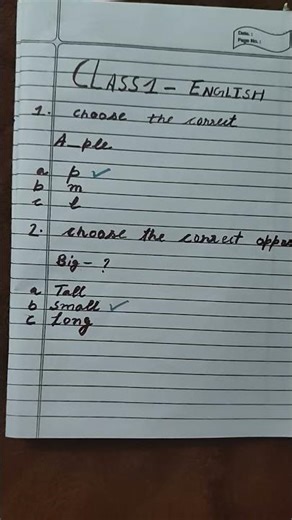 Date :
Page No. :
CLASS1 - ENGLISH
1. choose the correct
A_ple
a p ✓
b m
c l
2. choose the correct oppos
Big - ?
a Tall
b small ✓
c Long